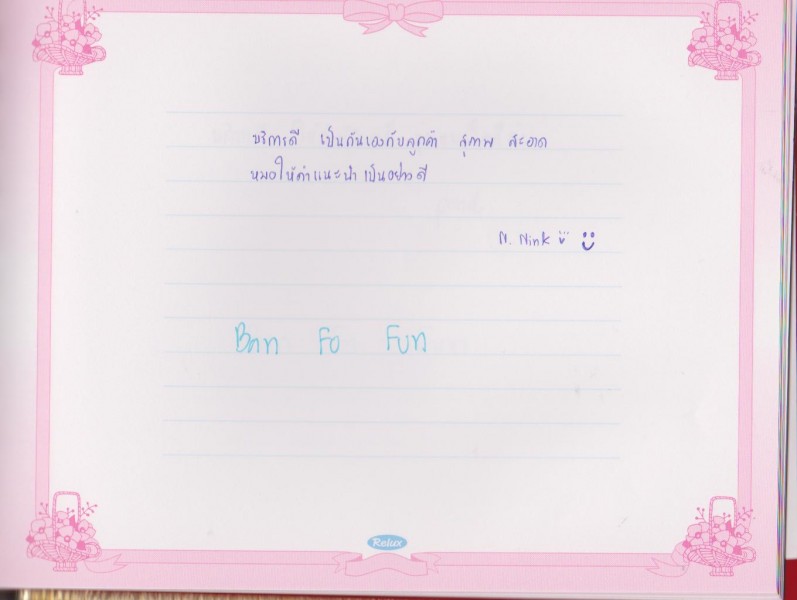 บริการดี เป็นกันเองกับลูกค้า สุภาพ สะอาด
หมอให้คำแนะนำเป็นอย่างดี
N. Nink
Ban Fo Fun
Relux